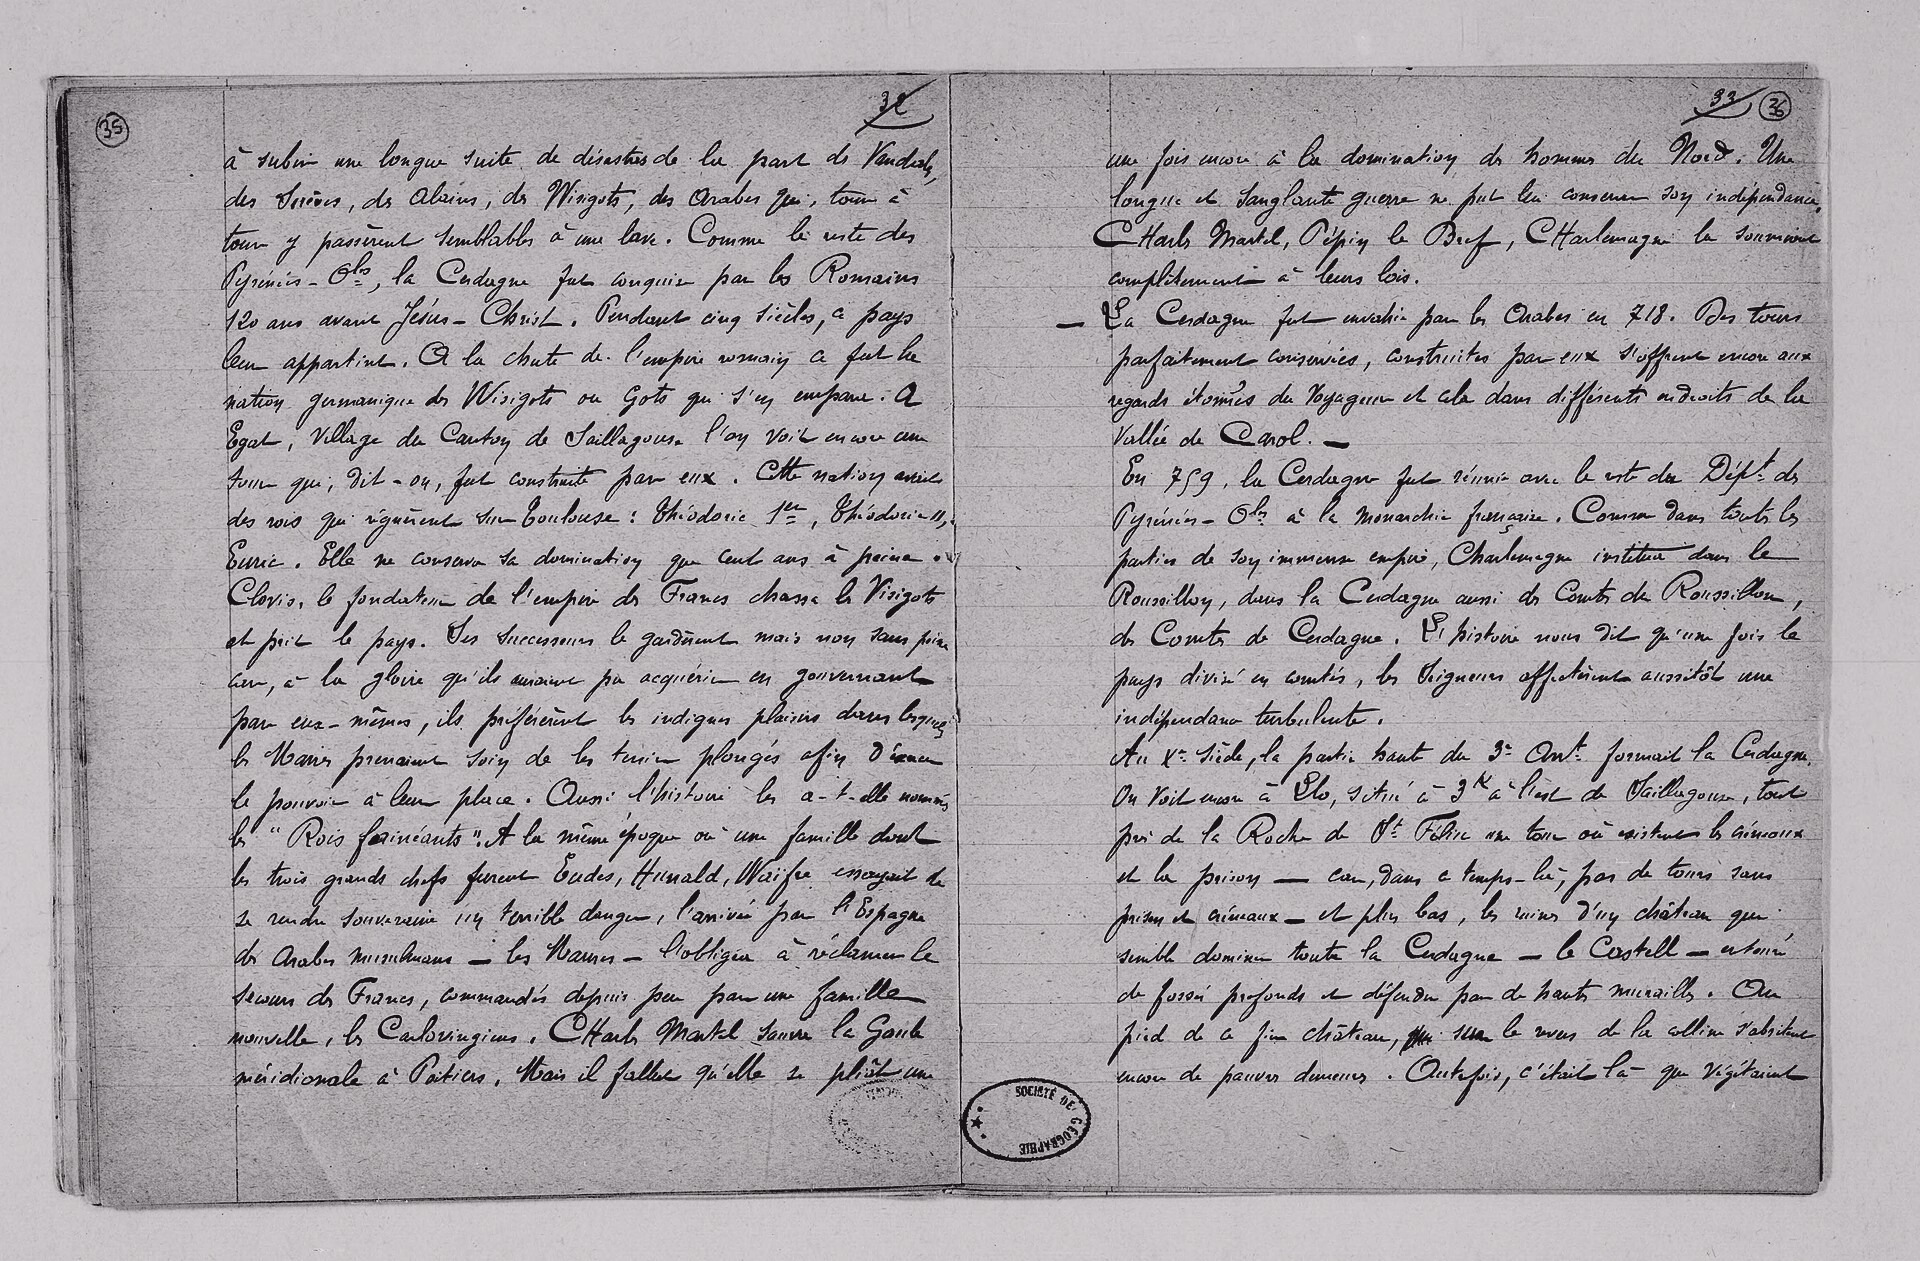 35
32
à subir une longue suite de désastres de la part des Vandales,
des Suèves, des Alains, des Wisigots, des Arabes qui, tour à
tour y passèrent semblables à une lave. Comme le reste des
Pyrénées-Oles, la Cerdagne fut conquise par les Romains
120 ans avant Jésus-Christ. Pendant cinq siècles, ce pays
leur appartint. A la chute de l'empire romain ce fut la
nation germanique des Wisigots ou Gots qui s'en empara. A
Egat, village du Canton de Saillagouse l'on voit encore une
tour qui, dit-on, fut construite par eux. Cette nation avait
des rois qui régnèrent sur Toulouse : Théodoric 1er, Théodoric II,
Euric. Elle ne conserva sa domination que cent ans à peine.
Clovis, le fondateur de l'empire des Francs chassa les Visigots
et prit le pays. Ses successeurs le gardèrent mais non sans peine
car, à la gloire qu'ils auraient pu acquérir en gouvernant
par eux-mêmes, ils préférèrent les indignes plaisirs dans lesquels
les Maires prenaient soin de les tenir plongés afin d'exercer
le pouvoir à leur place. Aussi l'histoire les a-t-elle nommés
les "Rois fainéants". A la même époque où une famille dont
les trois grands chefs furent Eudes, Hunald, Waifre essayait de
se rendre souveraine un terrible danger, l'arrivée par l'Espagne
des Arabes musulmans — les Maures — l'obligea à réclamer le
secours des Francs, commandés depuis peu par une famille
nouvelle, les Carlovingiens. CHarles Martel sauva la Gaule
méridionale à Poitiers. Mais il fallut qu'elle se pliât une
33
36
une fois encore à la domination des hommes du Nord. Une
longue et sanglante guerre ne put lui conserver son indépendance.
CHarles Martel, Pépin le Bref, CHarlemagne la soumirent
complètement à leurs lois.
— La Cerdagne fut envahie par les Arabes en 718. Des tours
parfaitement conservées, construites par eux s'offrent encore aux
regards étonnés du voyageur et cela dans différents endroits de la
Vallée de Carol. —
En 759, la Cerdagne fut réunie avec le reste du Dépt. des
Pyrénées-Oles à la monarchie française. Comme dans toutes les
parties de son immense empire, Charlemagne institua dans le
Roussillon, dans la Cerdagne aussi des Comtes du Roussillon,
des Comtes de Cerdagne. L'histoire nous dit qu'une fois le
pays divisé en comtés, les Seigneurs affectèrent aussitôt une
indépendance turbulente.
Au Xe siècle, la partie haute du 3e Art. formait la Cerdagne.
On voit encore à Llo, situé à 3K à l'est de Saillagouse, tout
près de la Roche de St Félix une tour où existent les créneaux
et la prison — car, dans ce temps-là, pas de tours sans
prison et créneaux — et plus bas, les ruines d'un château qui
semble dominer toute la Cerdagne — le Castell — entouré
de fossés profonds et défendu par de hautes murailles. Au
pied de ce fier château, sur le revers de la colline s'abritent
encore de pauvres demeures. Autrefois, c'était là que végétaient
SOCIÉTÉ DE GÉOGRAPHIE